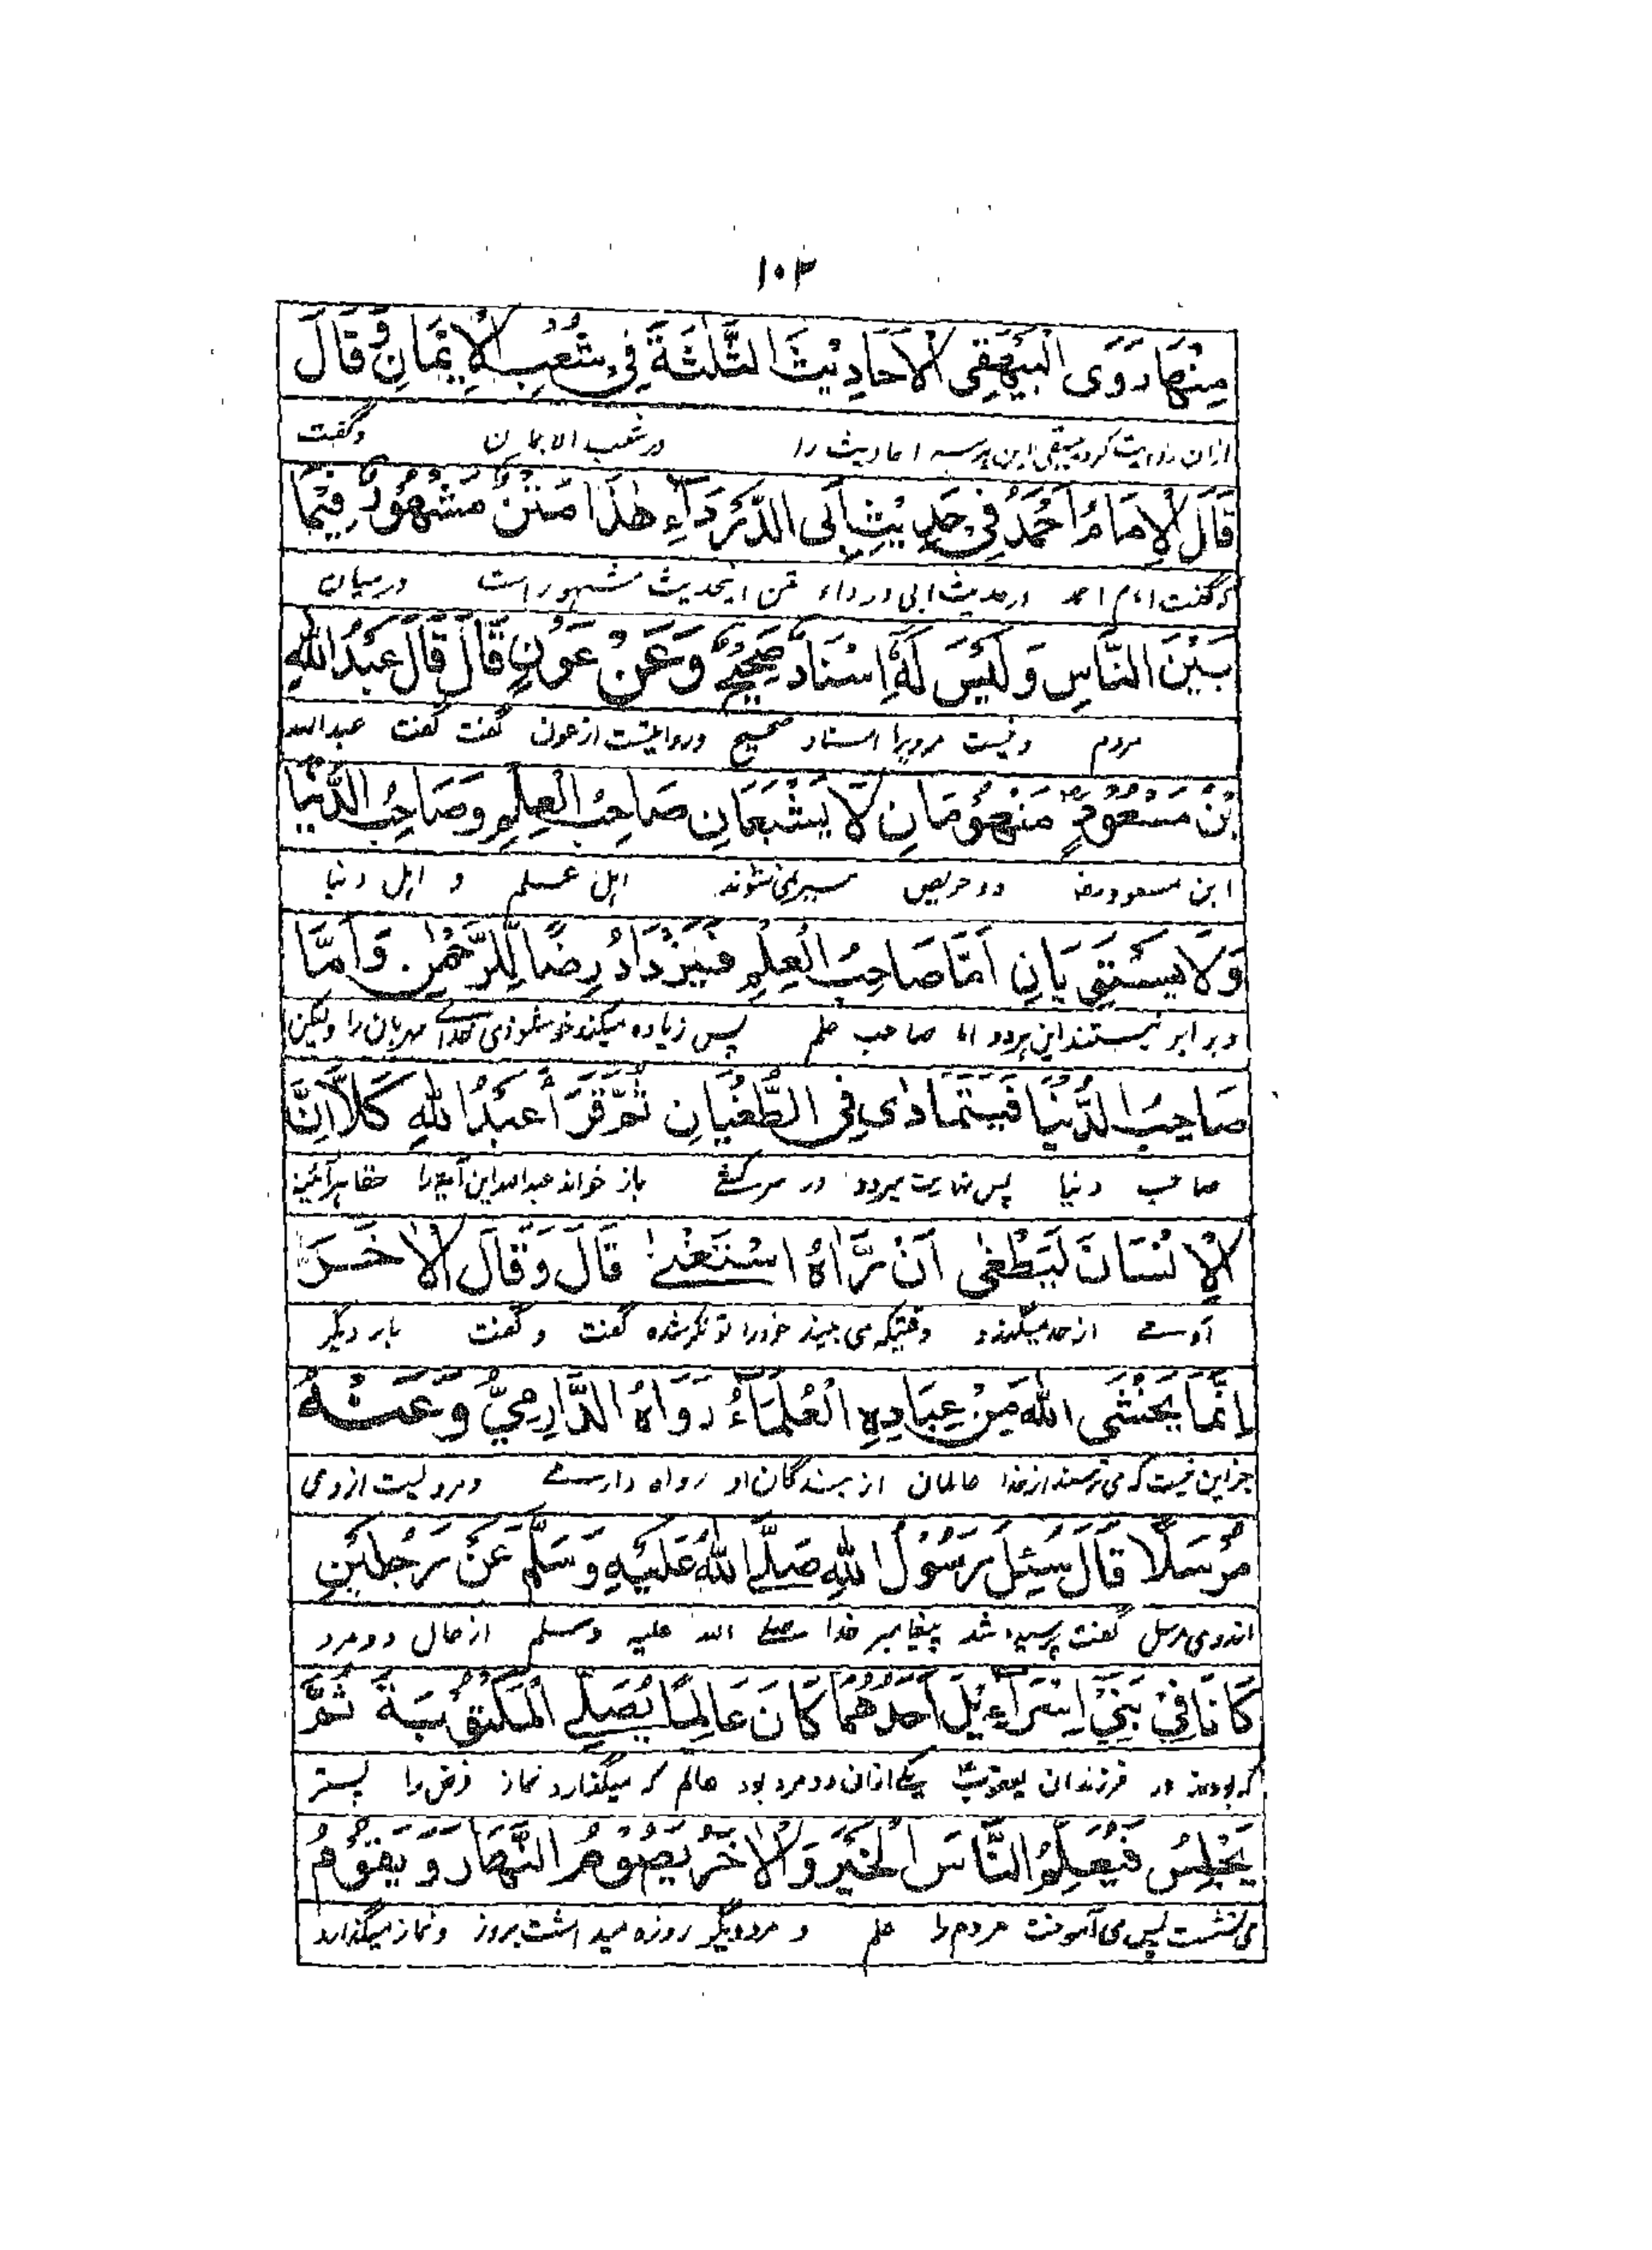 ۱۰۳
مِنْهَا رَوَى الْبَيْهَقِي الْاَحَادِيْثَ الثَّلٰثَةَ فِيْ شُعَبِ الْاِيْمَانِ وَقَالَ
ازان روایت کرد بیهقی این هرسه احادیث را درشعب الایمان وگفت
قَالَ الْاِمَامُ اَحْمَدُ فِيْ حَدِيْثِ اَبِى الدَّرْدَآءِ هٰذَا مَتَنٌ مَشْهُوْرٌ فِيْمَا
که گفت امام احمد درحدیث ابی درداء متن اینحدیث مشهور است درمیان
بَيْنَ النَّاسِ وَلَيْسَ لَهٗ اِسْنَادٌ صَحِيْحٌ وَعَنْ عَوْنٍ قَالَ قَالَ عَبْدُ اللهِ
مردم ونیست مرویرا اسناد صحیح وروایتست ازعون گفت گفت عبدالله
بْنُ مَسْعُوْدٍ رض مَنْهُوْمَانِ لَا يَشْبَعَانِ صَاحِبُ الْعِلْمِ وَصَاحِبُ الدُّنْيَا
ابن مسعود رض دو حریص سیرنمی شوند اهل علم و اهل دنیا
وَلَا يَسْتَوِيَانِ اَمَّا صَاحِبُ الْعِلْمِ فَيَزْدَادُ رِضًا لِّلرَّحْمٰنِ وَاَمَّا
وبرابر نیستند این هردو اما صاحب علم پس زیاده میکند خوشنودی خدای مهربان را ولیکن
صَاحِبُ الدُّنْيَا فَيَتَمَادٰى فِى الطُّغْيَانِ ثُمَّ قَرَأَ عَبْدُ اللهِ كَلَّا اِنَّ
صاحب دنیا پس نهایت میرود در سرکشے باز خواند عبدالله این آیه را حقا هرآئینه
الْاِنْسَانَ لَيَطْغٰى اَنْ رَّاٰهُ اسْتَغْنٰے قَالَ وَقَالَ الْاٰخَرَ
آدمے ازحد میگذرد وقتیکه می بیند خودرا توانگرشده گفت وگفت بار دیگر
اِنَّمَا يَخْشَى اللهَ مِنْ عِبَادِهِ الْعُلَمَآءُ رَوَاهُ الدَّارِمِيُّ وَعَنْهُ
جزاین نیست که می ترسند ازخدا عالمان از بندگان او رواه دارمے ومرویست ازوی
مُرْسَلًا قَالَ سُئِلَ رَسُوْلُ اللهِ صَلَّے اللهُ عَلَيْهِ وَسَلَّمَ عَنْ رَجُلَيْنِ
ازوی مرسل گفت پرسیده شد پیغامبر خدا صلے الله علیه وسلم ازحال دومرد
كَانَا فِيْ بَنِيْ اِسْرَآءِيْلَ اَحَدُهُمَا كَانَ عَالِمًا يُصَلِّے الْمَكْتُوْبَةَ ثُمَّ
که بودند در فرزندان یعقوب یکے ازان دومرد بود عالم که میگذارد نماز فرض را پستر
يَجْلِسُ فَيُعَلِّمُ النَّاسَ الْخَيْرَ وَالْاٰخَرُ يَصُوْمُ النَّهَارَ وَيَقُوْمُ
می نشست پس می آموخت مردم را علم و مرد دیگر روزه میداشت بروز ونماز میگذارد